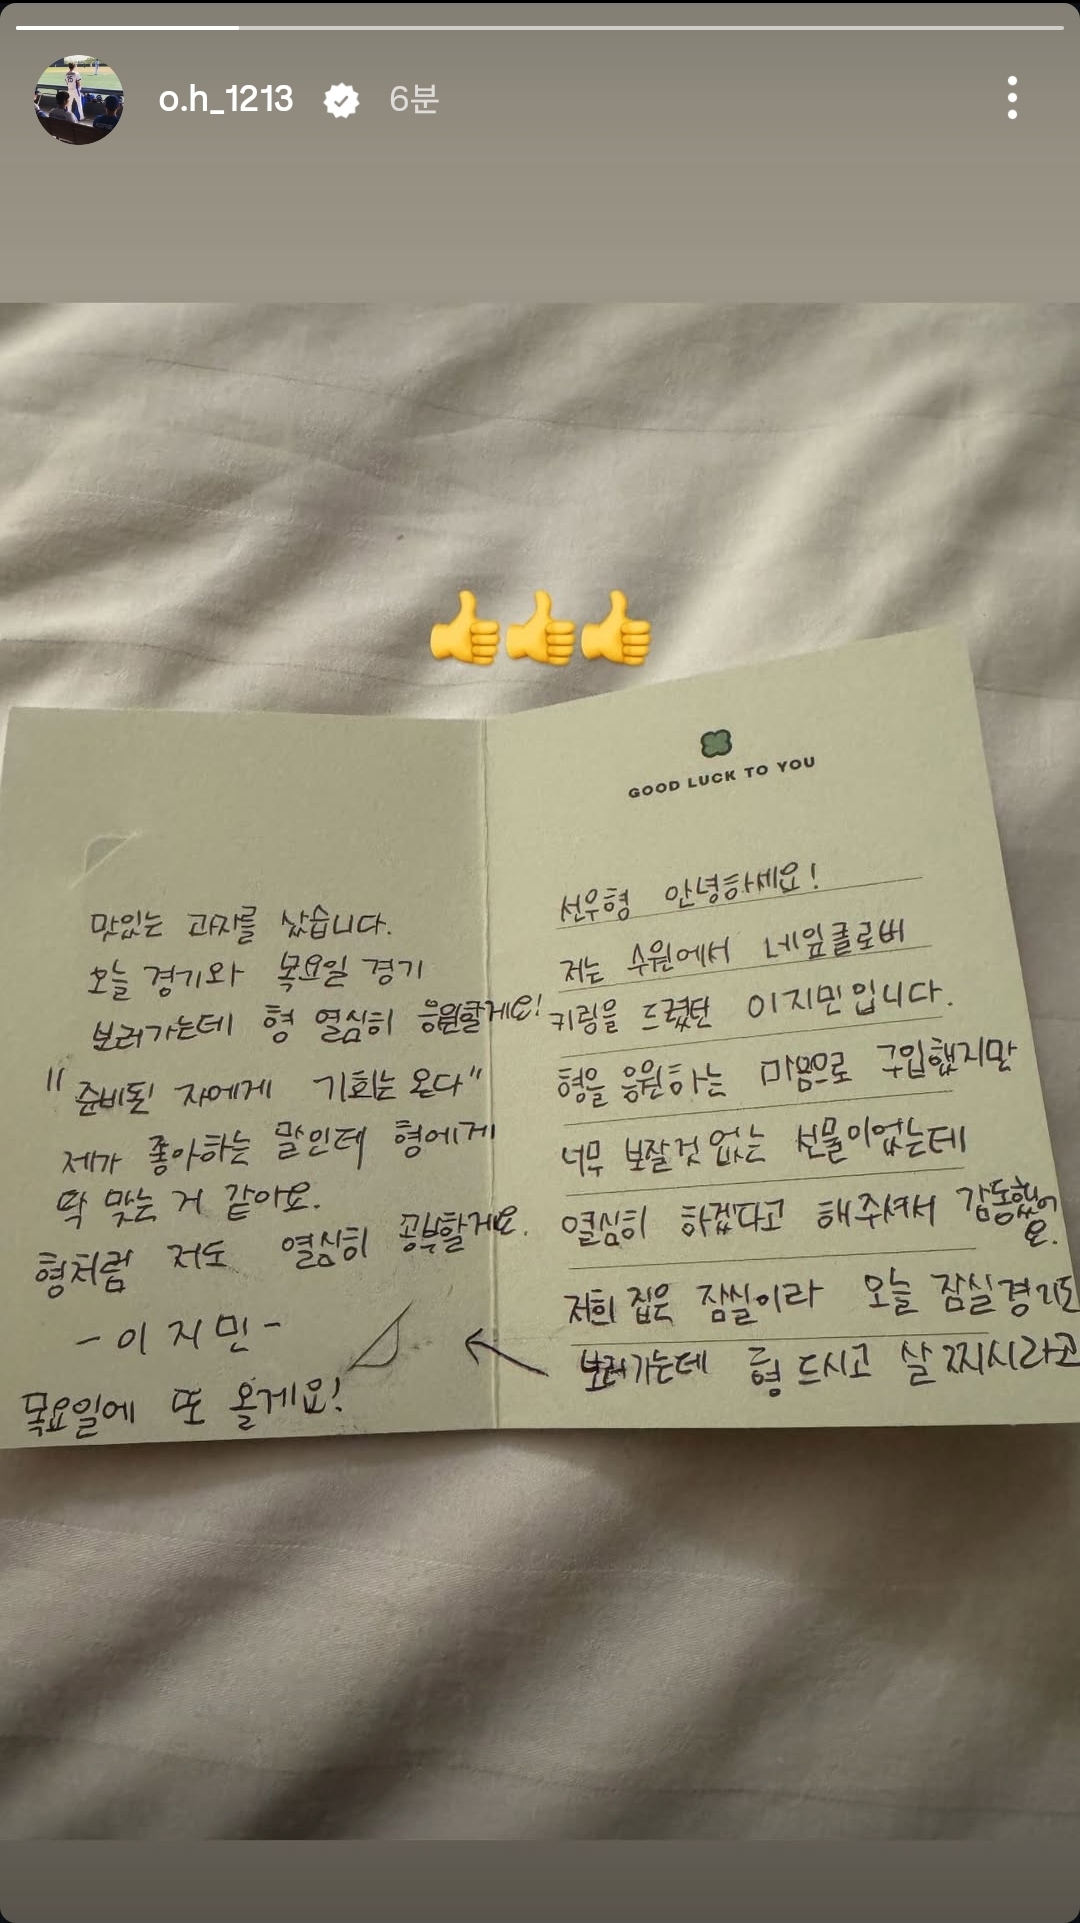 o.h_1213 6분
GOOD LUCK TO YOU
선우형 안녕하세요!
저는 수원에서 네잎클로버
키링을 드렸던 이지민입니다.
형을 응원하는 마음으로 구입했지만
너무 보잘것 없는 선물이었는데
열심히 하겠다고 해주셔서 감동했어
요.
저희 집은 잠실이라 오늘 잠실경기도
보러가는데 형 드시고 살찌시라고
맛있는 과자를 샀습니다.
오늘 경기와 목요일 경기
보러가는데 형 열심히 응원할게요!
"준비된 자에게 기회는 온다"
제가 좋아하는 말인데 형에게
딱 맞는 거 같아요.
형처럼 저도 열심히 공부할게요.
-이지민-
목요일에 또 올게요!